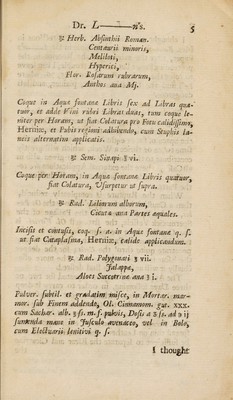 Dr. L———n's. 5
℞ Herb. Absinthii Roman.
Centaurii minoris,
Meliloti,
Hyperici,
Flor. Rosarum rubrarum,
Anthos ana Mj.
Coque in Aqua fontana Libris sex ad Libras qua-
tuor, et adde Vini rubri Libras duas, tum coque le-
niter per Horam, ut fiat Colatura pro Fotu calidissimo,
Herniæ, et Pubis regioni adhibendo, cum Stuphis la-
neis alternatim applicatis.
℞ Sem. Sinapi ℥ vi.
Coque per Horam, in Aqua fontana Libris quatuor,
fiat Colatura, Usurpetur ut supra.
℞ Rad. Laliorum alborum,
Cicutæ ana Partes æquales.
Incisis et contusis, coq. s. a. in Aqua fontana q. s.
ut fiat Cataplasma, Herniæ, calide applicandum.
℞ Rad. Polygonati ʒ vii.
Jalappæ,
Aloes Succotrinæ ana ʒ i.
Pulver. subtil. et gradatim misce, in Mortar. mar-
mor. sub Finem addendo, Ol. Cinnamom. gut. xxx.
cum Sachar. alb. ʒ fs. m. f. pulvis, Dosis a ℈ fs. ad ℈ ij
sumenda mane in Jusculo avenaceo, vel in Bolo,
cum Electuarii lenitivi q. s.
I thought